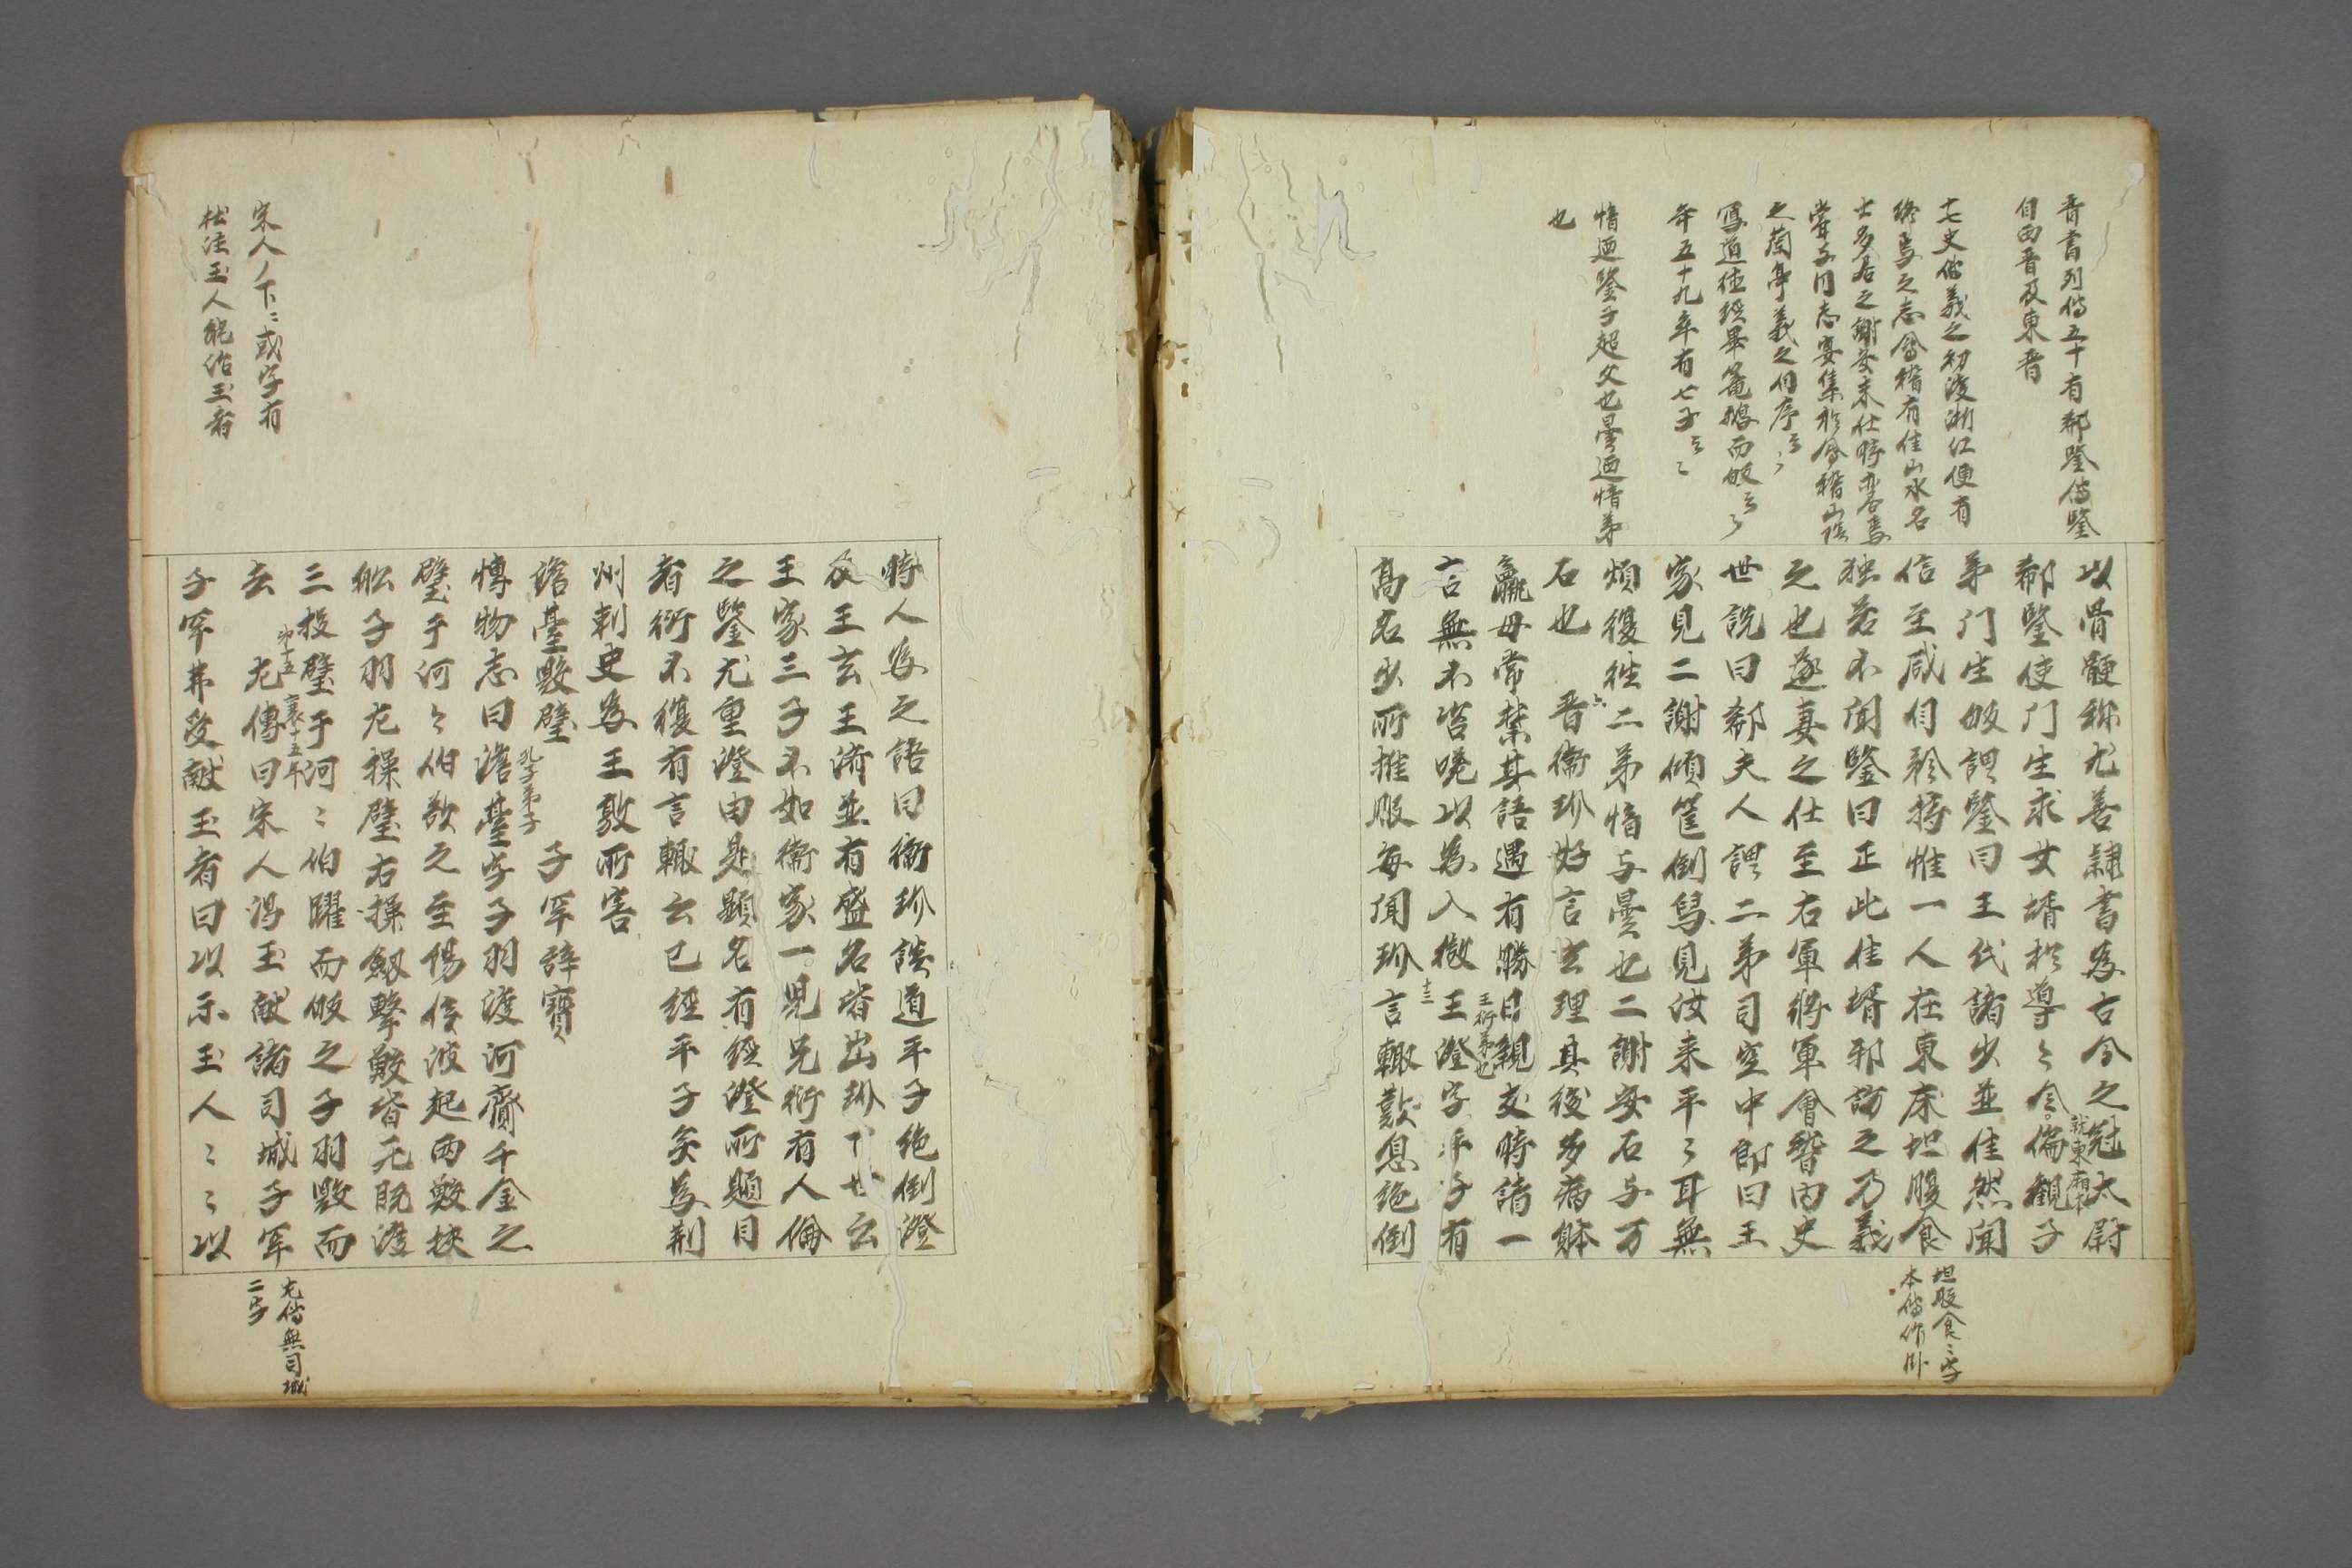 晋書列傳五十有郗鑒傳鑒
自西晋及東晋
十七史傳羲之初渡浙江便有
終焉之志會稽有佳山水名
士多居之謝安未仕時亦居焉
嘗与同志宴集於會稽山陰
之蘭亭羲之自序云々
寫道德經畢篭鵝而皈云々
年五十九卒有七子云々
愔迺鑒子超父也曇迺愔弟
也
以骨骾称尤善隷書為古今之冠太尉
郗鑒使門生求女壻於導々令偏觀子
就東廂下
弟門生皈謂鑒曰王氏諸少並佳然聞
信至咸自矜持惟一人在東床坦腹食
独若不聞鑒曰正此佳壻邪訪之乃羲
之也遂妻之仕至右軍将軍會稽内史
世説曰郗夫人謂二弟司空中郎曰王
家見二謝傾筐倒屣見汝来平々耳無
煩復徃二弟愔与曇也二謝安石与万
石也 晋衞玠好言玄理其後多病躰
六
羸母常禁其語遇有勝日親友時請一
言無不咨嘆以為入微王澄字平子有
王衍弟也
高名少所推服毎聞玠言輙歎息絶倒
十三
坦腹食三字
本傳作卧
時人為之語曰衞玠談道平子絶倒澄
及王玄王済並有盛名皆出玠下世云
王家三子不如衞家一児兄衍有人倫
之鑒尤重澄由是顕名有經澄所題目
者衍不復有言輙云已經平子矣為荆
州刺史為王敦所害
澹臺毀璧 子罕辞寶
孔子弟子
博物志曰澹臺字子羽渡河齎千金之
璧于河々伯欲之至陽侯波起両鮫挟
舩子羽左操璧右操劔撃鮫皆死既渡
三投璧于河々伯躍而皈之子羽毀而
去 左傳曰宋人得玉献諸司城子罕
襄十五年
子罕弗受献玉者曰以示玉人々々以
宋人ノ下ニ或字有
杜注玉人能治玉者
左傳無司城
二字